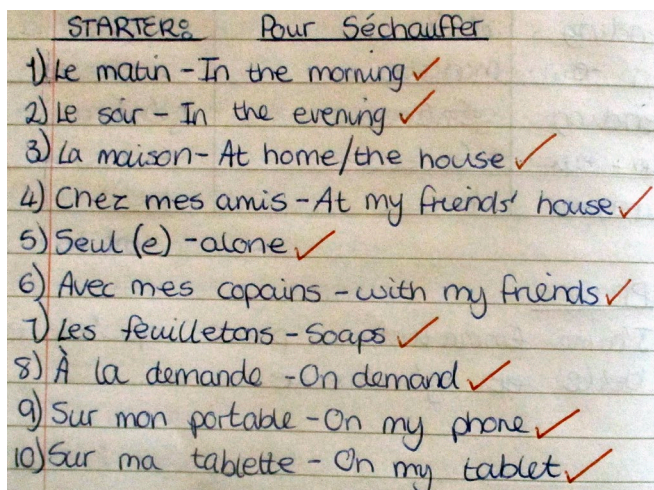 STARTER: Pour Séchauffer
1) Le matin - In the morning ✓
2) Le soir - In the evening ✓
3) La maison - At home/the house ✓
4) Chez mes amis - At my friends' house ✓
5) Seul (e) - alone ✓
6) Avec mes copains - with my friends ✓
7) Les feuilletons - Soaps ✓
8) À la demande - On demand ✓
9) Sur mon portable - On my phone ✓
10) Sur ma tablette - On my tablet ✓